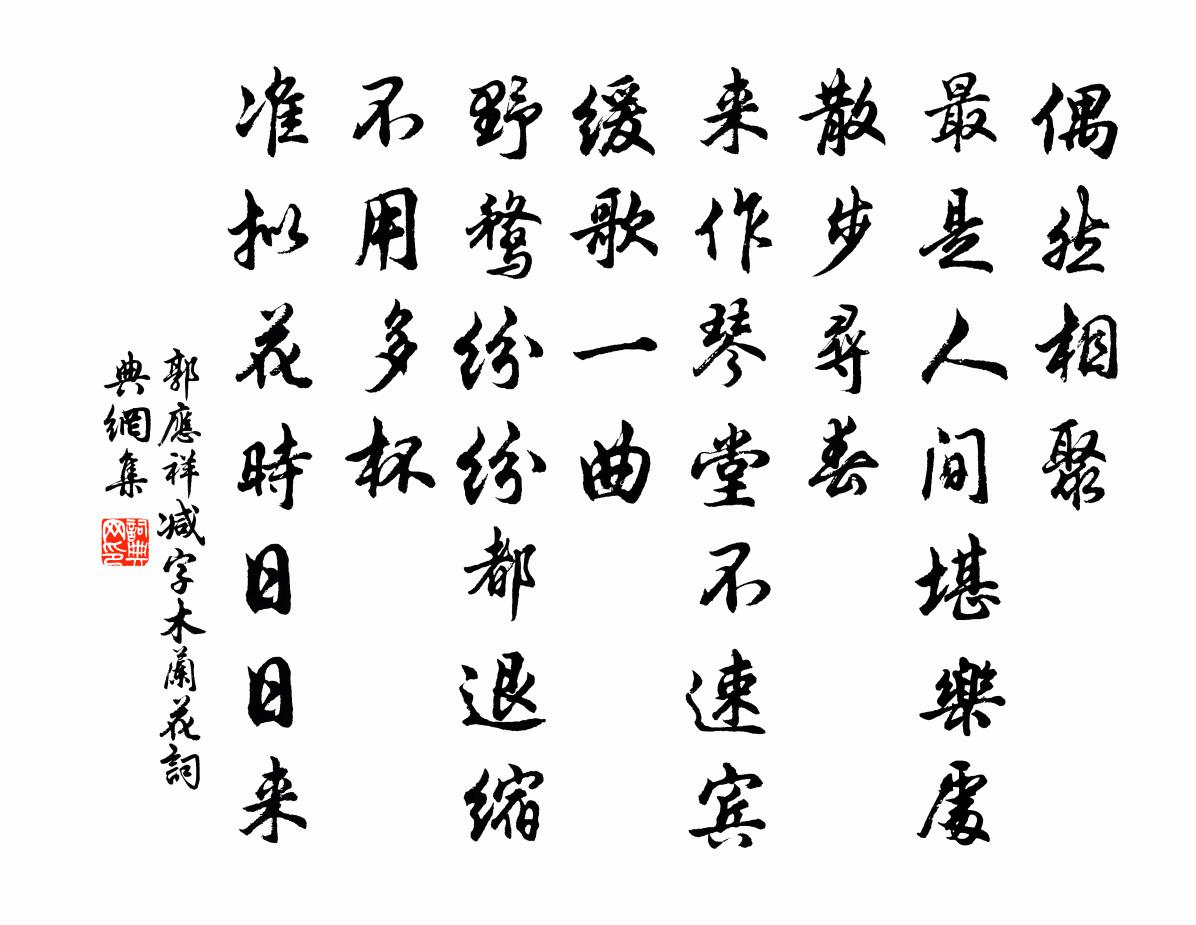 偶然相聚
最是人间堪樂處
散步尋春
来作琴堂不速宾
缓歌一曲
野鶩纷纷都退缩
不用多杯
准拟花時日日来
郭應祥减字木蘭花詞
典網集
詞典网印